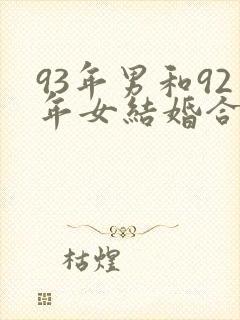 93年男和92
年女結婚合
枯煌